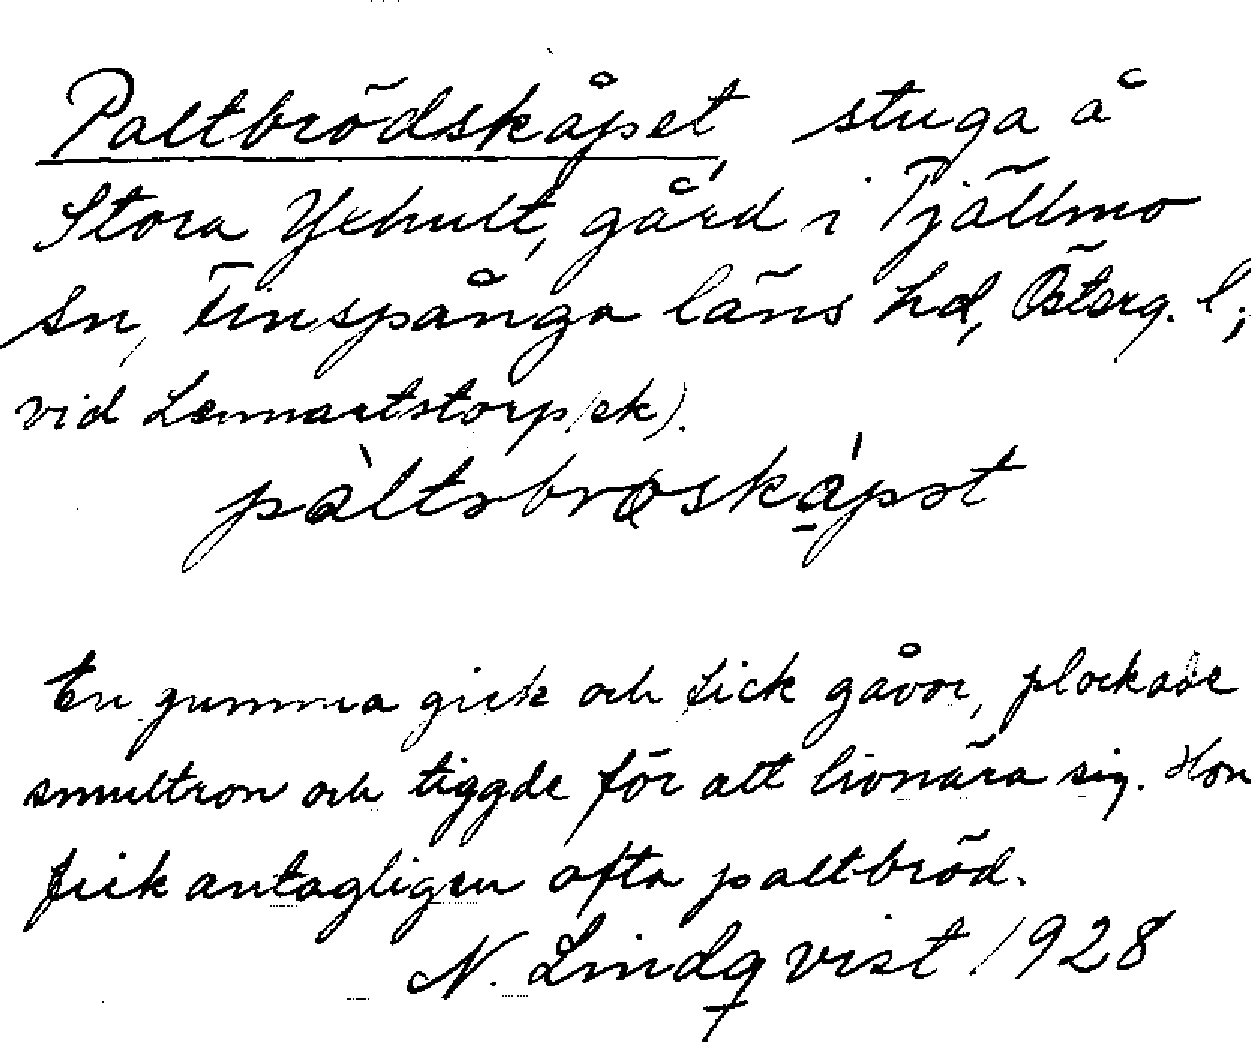 Paltbrödskåpet, stuga å
Stora Ykhult, gård i Tjällmo
sn, Finspånga läns hd, Österg. l;
vid Lennartstorp (ek).
pàltsbroskápet
En gumma gick och fick gåvor, plockade
smultron och tiggde för att livnära sig. Hon
fick antagligen ofta paltbröd.
N. Lindqvist 1928